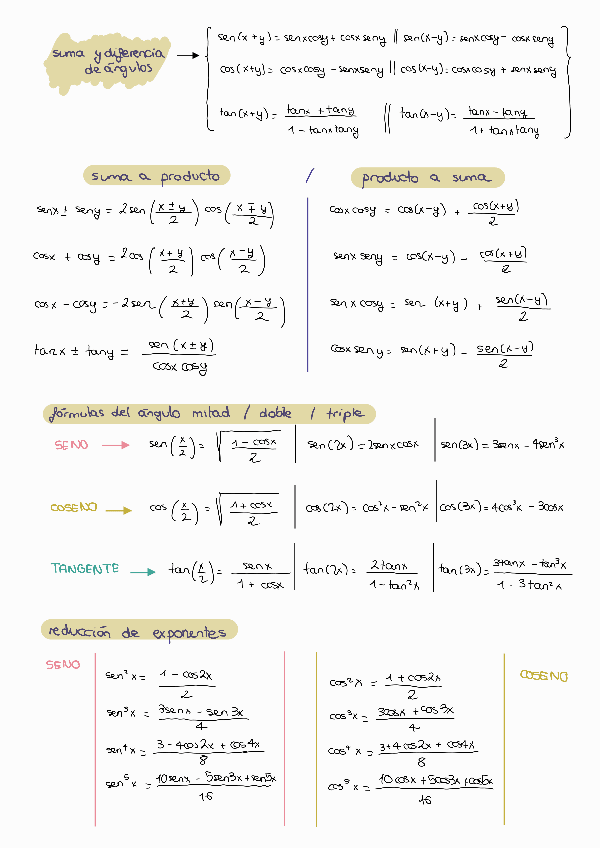 suma y diferencia de ángulos →
sen(x+y) = senxcosy + cosxseny || sen(x-y) = senxcosy - cosxseny
cos(x+y) = cosxcosy - senxseny || cos(x-y) = cosxcosy + senxseny
tan(x+y) = (tanx + tany)/(1 - tanxtany) || tan(x-y) = (tanx - tany)/(1 + tanxtany)
suma a producto / producto a suma
senx ± seny = 2sen((x±y)/2) cos((x∓y)/2)
cosx + cosy = 2cos((x+y)/2) cos((x-y)/2)
cosx - cosy = -2sen((x+y)/2) sen((x-y)/2)
tanx ± tany = sen(x±y)/(cosxcosy)
cosxcosy = cos(x-y) + cos(x+y)/2
senxseny = cos(x-y) - cos(x+y)/2
senxcosy = sen(x+y) + sen(x-y)/2
cosxseny = sen(x+y) - sen(x-y)/2
fórmulas del ángulo mitad / doble / triple
SENO → sen(x/2) = √((1-cosx)/2) | sen(2x) = 2senxcosx | sen(3x) = 3senx - 4sen³x
COSENO → cos(x/2) = √((1+cosx)/2) | cos(2x) = cos²x - sen²x | cos(3x) = 4cos³x - 3cosx
TANGENTE → tan(x/2) = senx/(1+cosx) | tan(2x) = 2tanx/(1-tan²x) | tan(3x) = (3tanx - tan³x)/(1-3tan²x)
reducción de exponentes
SENO
sen²x = (1 - cos2x)/2
sen³x = (3senx - sen3x)/4
sen⁴x = (3 - 4cos2x + cos4x)/8
sen⁵x = (10senx - 5sen3x + sen5x)/16
COSENO
cos²x = (1 + cos2x)/2
cos³x = (3cosx + cos3x)/4
cos⁴x = (3+4cos2x + cos4x)/8
cos⁵x = (10cosx + 5cos3x + cos5x)/16